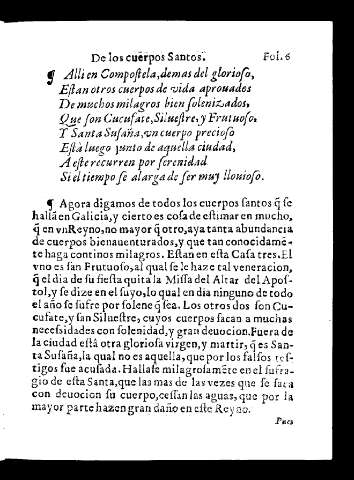 De los cuerpos Santos.      Fol. 6
¶ Alli en Compostela, demas del glorioso,
Estan otros cuerpos de vida aprouados
De muchos milagros bien solenizados,
Que son Cucufate, Siluestre, y Frutuoso,
Y Santa Susaña, vn cuerpo precioso
Està luego junto de aquella ciudad,
A este recurren por serenidad
Si el tiempo se alarga de ser muy llouioso.
¶ Agora digamos de todos los cuerpos santos q̃ se
hallã en Galicia, y cierto es cosa de estimar en mucho,
q̃ en vn Reyno, no mayor q̃ otro, aya tanta abundancia
de cuerpos bienauenturados, y que tan conocidamẽ-
te haga continos milagros. Estan en esta Casa tres. El
vno es san Frutuoso, al qual se le haze tal veneracion,
q̃ el dia de su fiesta quita la Missa del Altar del Apos-
tol, y se dize en el suyo, lo qual en dia ninguno de todo
el año se sufre por solene q̃ sea. Los otros dos son Cu-
cufate, y san Siluestre, cuyos cuerpos sacan a muchas
necessidades con solenidad, y gran deuocion. Fuera de
la ciudad està otra gloriosa virgen, y martir, q̃ es San-
ta Susaña, la qual no es aquella, que por los falsos tes-
tigos fue acusada. Hallase milagrosamẽte en el sufra-
gio de esta Santa, que las mas de las vezes que se saca
con deuocion su cuerpo, cessan las aguas, que por la
mayor parte hazen gran daño en este Reyno.
Pues